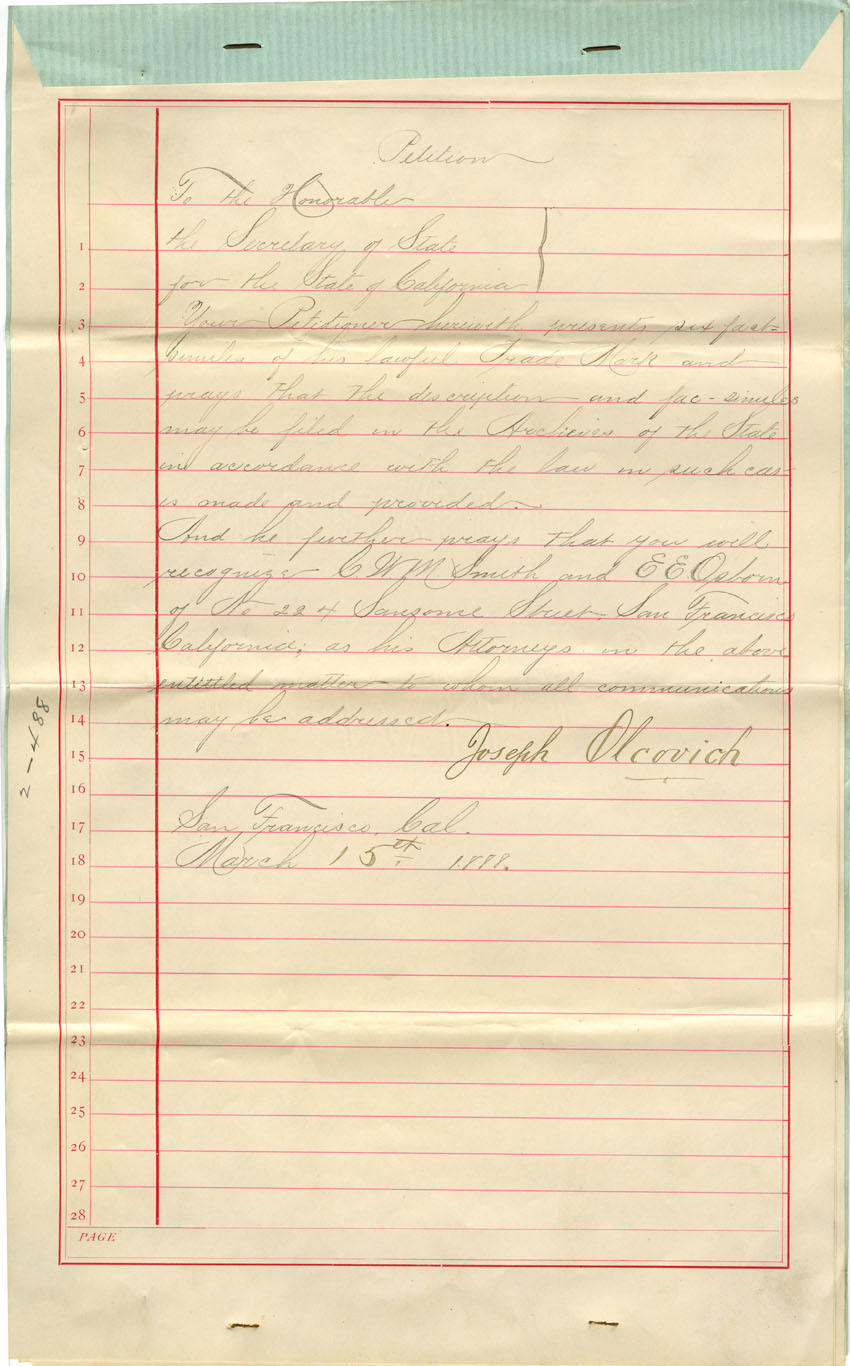 Petition
To the Honorable
the Secretary of State
for the State of California
1
2
Your Petitioner herewith presents six fact=
3
similes of his lawful Trade Mark and
4
prays that the description and fac-similes
5
may be filed in the Archieves of the State
6
in accordance with the law in such cas
7
is made and provided.
8
And he further prays that you will
9
recognize C. W. M. Smith and E E. Osborn
10
of No 224 Sansome Street, San Francisco
11
California; as his Attorneys in the above
12
entittled matter to whom all communications
13
may be addressed.
14
Joseph Olcovich
15
16
San Francisco, Cal.
17
March 15th 1888.
18
19
20
21
22
23
24
25
26
27
28
PAGE
2-488